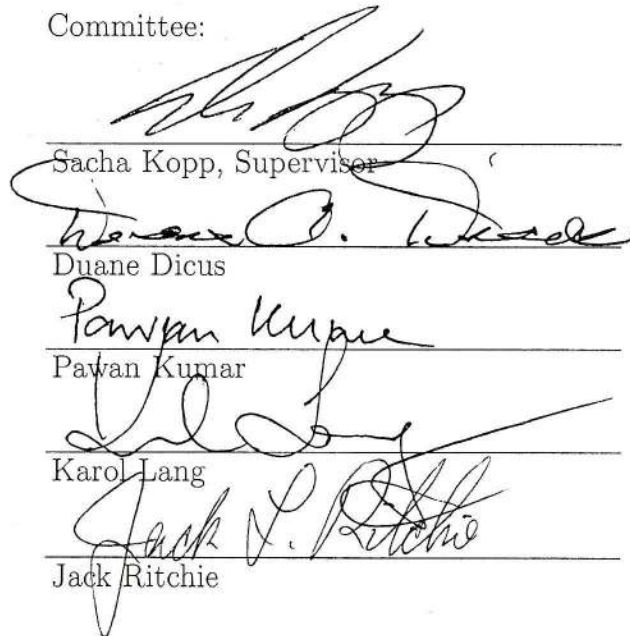 Committee:
Sacha Kopp, Supervisor
Duane Dicus
Pawan Kumar
Pawan Kumar
Karol Lang
Jack L. Ritchie
Jack Ritchie